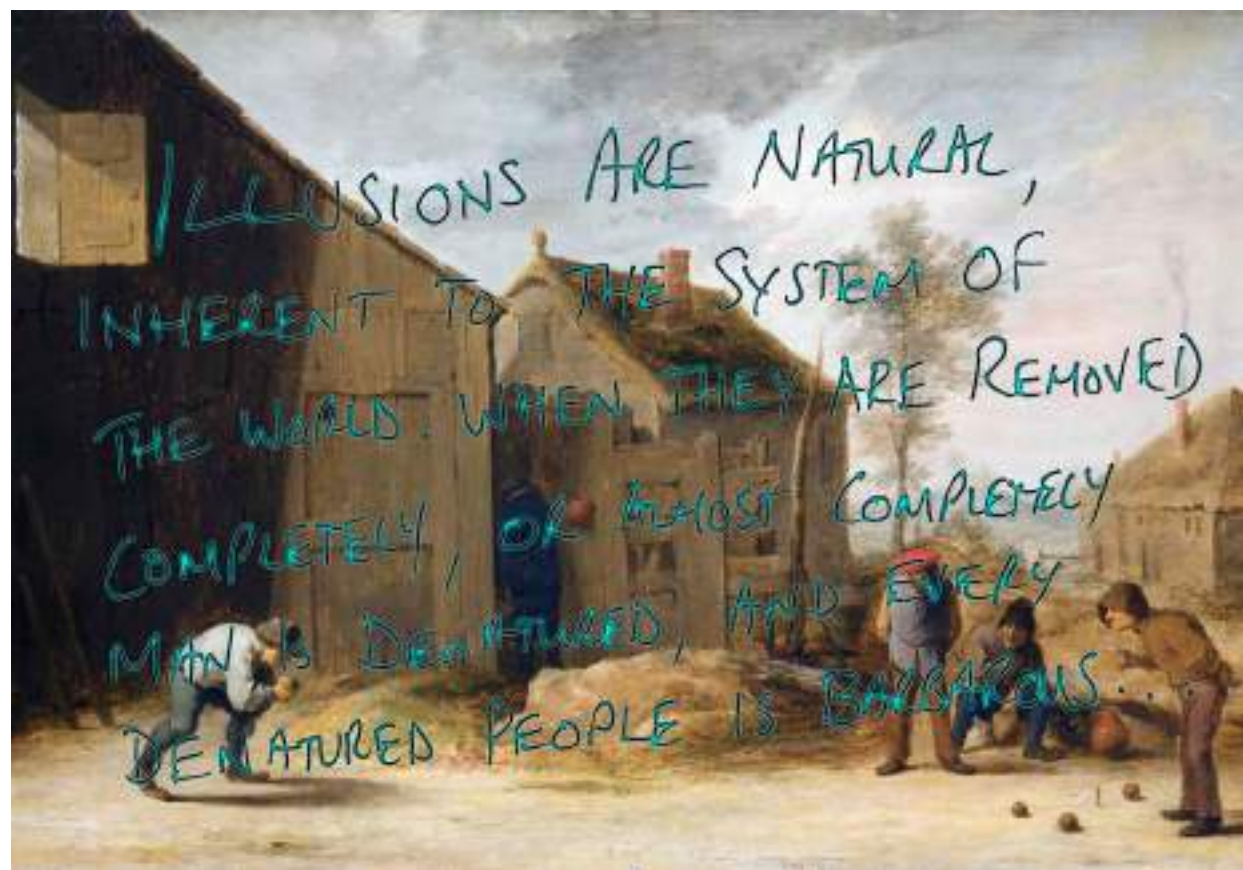 ILLUSIONS ARE NATURAL,
INHERENT TO THE SYSTEM OF
THE WORLD. WHEN THEY ARE REMOVED
COMPLETELY, OR ALMOST COMPLETELY
MAN IS DENATURED, AND EVERY
DENATURED PEOPLE IS BARBAROUS...